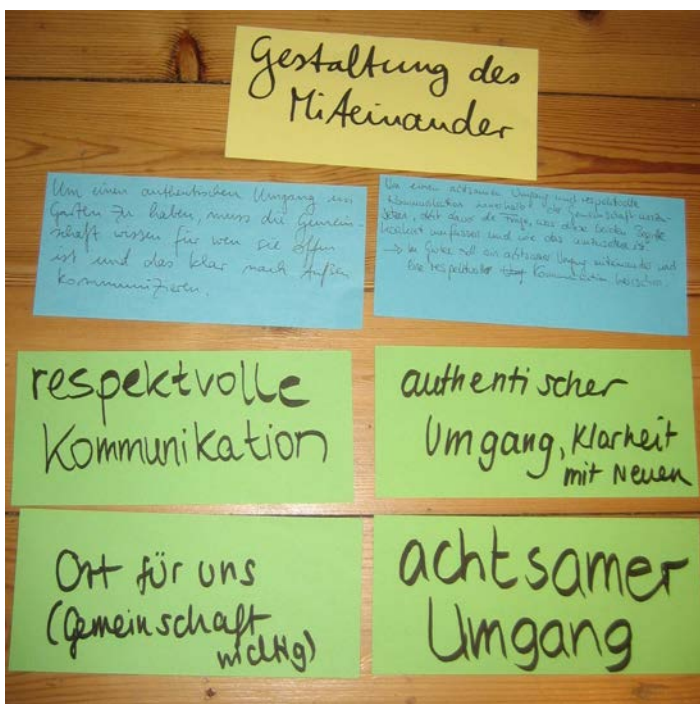 Gestaltung des
Miteinander
Um einen authentischen Umgang im
Garten zu haben, muss die Gemein-
schaft wissen für wen sie offen
ist und das klar nach Außen
kommunizieren.
Um einen achtsamen Umgang und respektvolle
Kommunikation innerhalb der Gemeinschaft
steht davor die Frage, was diese beiden Begriffe
und wie das
→ Im Garten soll ein achtsamer Umgang miteinander und
eine respektvolle Kommunikation herrschen.
respektvolle
Kommunikation
authentischer
Umgang, Klarheit
mit Neuen
Ort für uns
(Gemeinschaft
wichtig)
achtsamer
Umgang